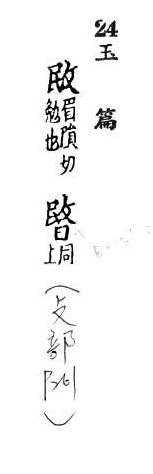 24 玉篇
敃 眉隕切 勉也 暋 同上 (攴部